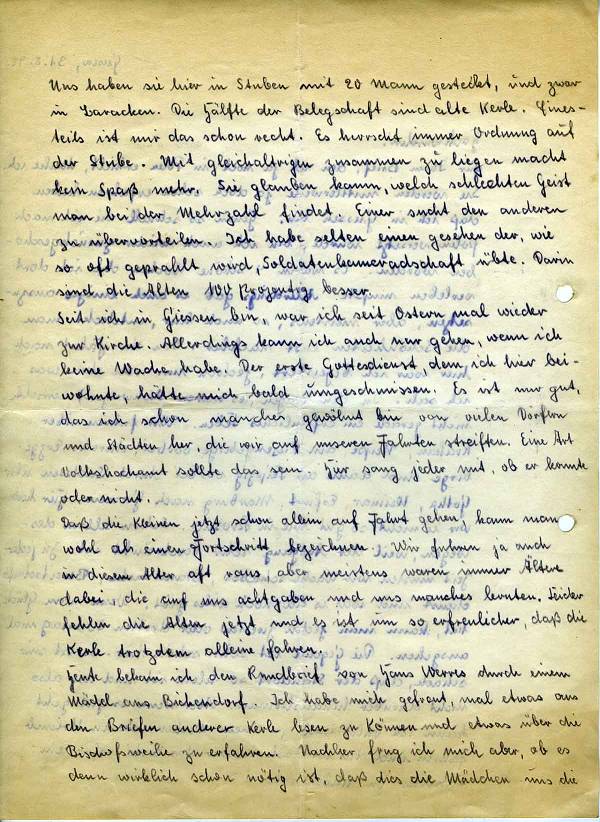 Uns haben sie hier in Stuben mit 20 Mann gesteckt, und zwar
in Baracken. Die Hälfte der Belegschaft sind alte Kerle. Eines-
teils ist mir das schon recht. Es herrscht immer Ordnung auf
der Stube. Mit gleichaltrigen zusammen zu liegen macht
kein Spaß mehr. Sie glauben kaum, welch schlechten Geist
man bei der Mehrzahl findet. Einer sucht den anderen
zu übervorteilen. Ich habe selten einen gesehen der, wie
so oft geprahlt wird, Soldatenkameradschaft übte. Darin
sind die Alten 100 Prozentig besser.
Seit ich in Giessen bin, war ich seit Ostern mal wieder
zur Kirche. Allerdings kann ich auch nur gehen, wenn ich
keine Wache habe. Der erste Gottesdienst, dem ich hier bei-
wohnte, hätte mich bald umgeschmissen. Es ist nur gut,
das ich schon manches gewöhnt bin von vielen Dörfern
und Städten her, die wir auf unseren Fahrten streiften. Eine Art
Volkshochamt sollte das sein. Hier sang jeder mit, ob er konnte
oder nicht.
Daß die Kleinen jetzt schon allein auf Fahrt gehen, kann man
wohl als einen Fortschritt bezeichnen. Wir fuhren ja auch
in diesem Alter oft raus, aber meistens waren immer Ältere
dabei, die auf uns achtgaben und uns manches lernten. Leider
fehlen die Alten jetzt und es ist um so erfreulicher, daß die
Kerle trotzdem alleine fahren.
Heute bekam ich den Rundbrief von Hans Werres durch einem
Mädel aus Bickendorf. Ich habe mich gefreut, mal etwas aus
den Briefen anderer Kerle lesen zu können und etwas über die
Bischofsweihe zu erfahren. Nachher frug ich mich aber, ob es
denn wirklich schon nötig ist, daß dies die Mädchen uns die